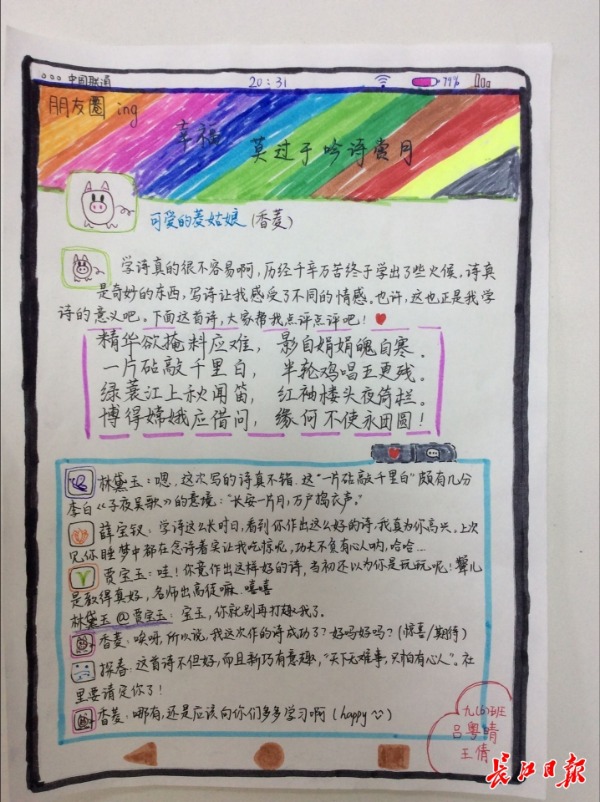 中国联通 20:31 79%
朋友圈 ing
幸福 莫过于吟诗赏月
可爱的菱姑娘(香菱)
学诗真的很不容易啊,历经千辛万苦终于学出了些火候。诗真
是奇妙的东西,写诗让我感受了不同的情感。也许,这也正是我学
诗的意义吧。下面这首诗,大家帮我点评点评吧!
精华欲掩料应难, 影自娟娟魄自寒。
一片砧敲千里白, 半轮鸡唱五更残。
绿蓑江上秋闻笛, 红袖楼头夜倚栏。
博得嫦娥应借问, 缘何不使永团圆!
林黛玉:嗯.这次写的诗真不错.这“一片砧敲千里白”颇有几分
李白《子夜吴歌》的意境:“长安一片月,万户捣衣声。”
薛宝钗:学诗这么长时日,看到你作出这么好的诗,我真为你高兴。上次
见你睡梦中都在念诗着实让我吃惊呢,功夫不负有心人呐,哈哈...
贾宝玉:哇!你竟作出这样好的诗,当初还以为你是玩玩呢!颦儿
是教得真好,名师出高徒嘛.嘻嘻
林黛玉@贾宝玉:宝玉,你就别再打趣我了。
香菱:唉呀,所以说,我这次作的诗成功了?好吗好吗?(惊喜/期待)
探春.这首诗不但好,而且新巧有意趣,“天下无难事,只怕有心人”。社
里要请定你了!
香菱:哪有,还是应该向你们多多学习啊(happy)
九(6)班
吕粤晴
王倩
长江日报